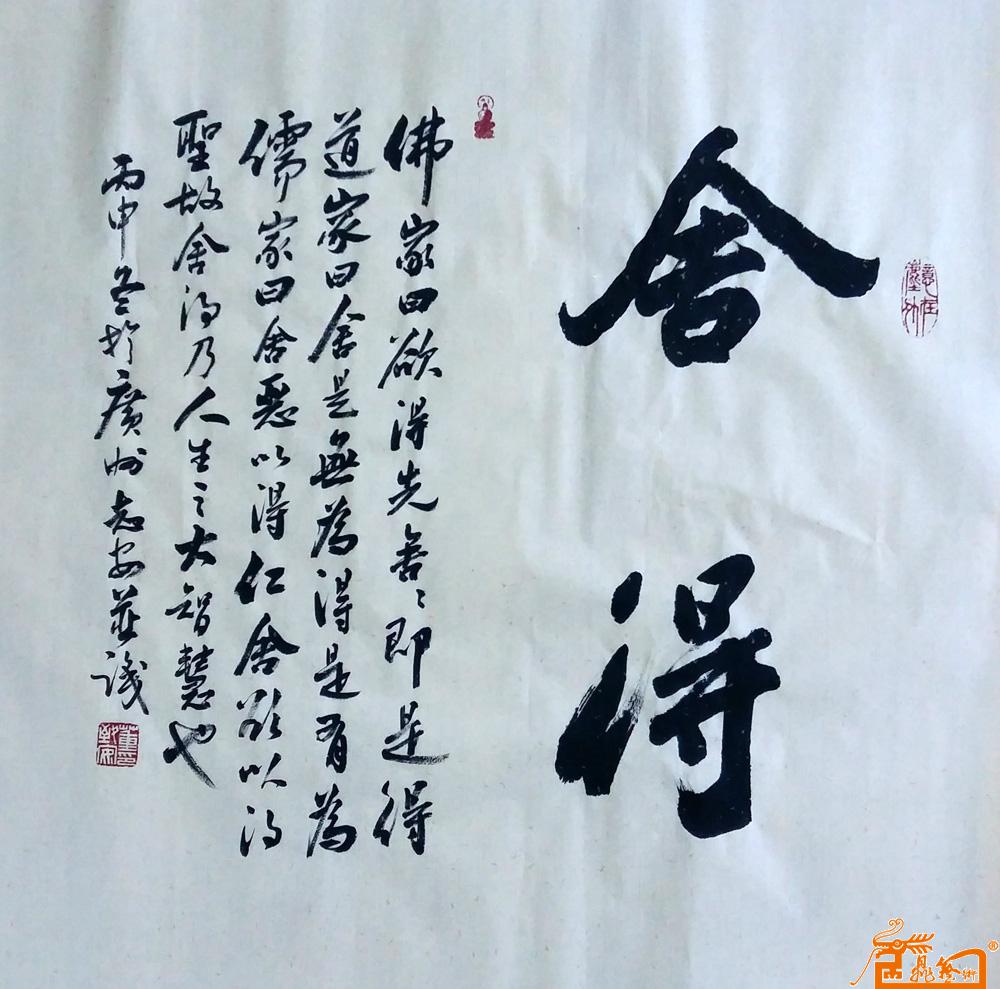 舍得
佛家曰欲得先舍々即是得
道家曰舍是無為得是有為
儒家曰舍惡以得仁舍欲以得
聖故舍得乃人生之大智慧也
丙申冬於廣州志安並識